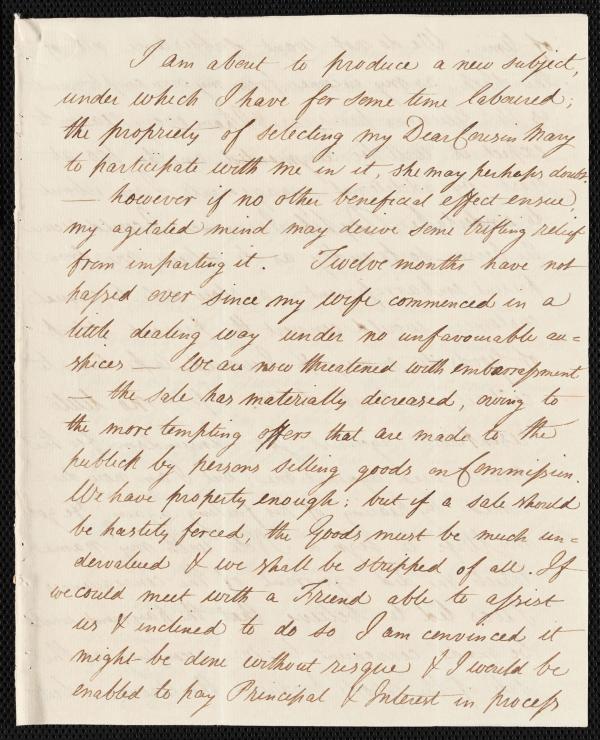 I am about to produce a new subject,
under which I have for some time laboured;
the propriety of selecting my Dear Cousin Mary
to participate with me in it, she may perhaps doubt.
— however if no other beneficial effect ensue,
my agitated mind may derive some trifling relief
from imparting it. Twelve months have not
paſsed over since my wife commenced in a
little dealing way under no unfavourable au=
spices — We are now threatened with embarraſsment
— the sale has materially decreased, owing to
the more tempting offers that are made to the
publick by persons selling goods on Commiſsion.
We have property enough; but if a sale should
be hastily forced, the Goods must be much un=
dervalued & we shall be stripped of all. If
we could meet with a Friend able to aſsist
us & inclined to do so I am convinced it
might be done without risque & I would be
enabled to pay Principal & Interest in proceſs